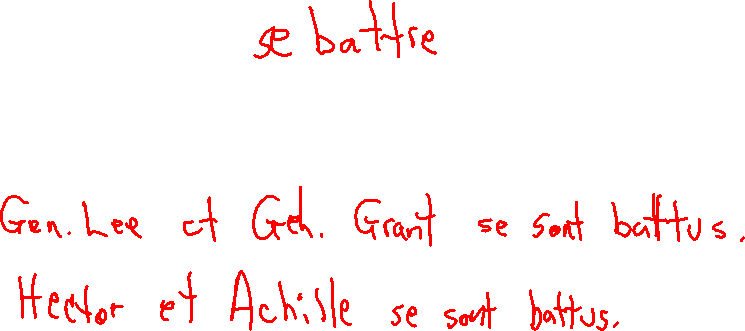 se battre
Gen. Lee et Gen. Grant se sont battus.
Hector et Achille se sont battus.